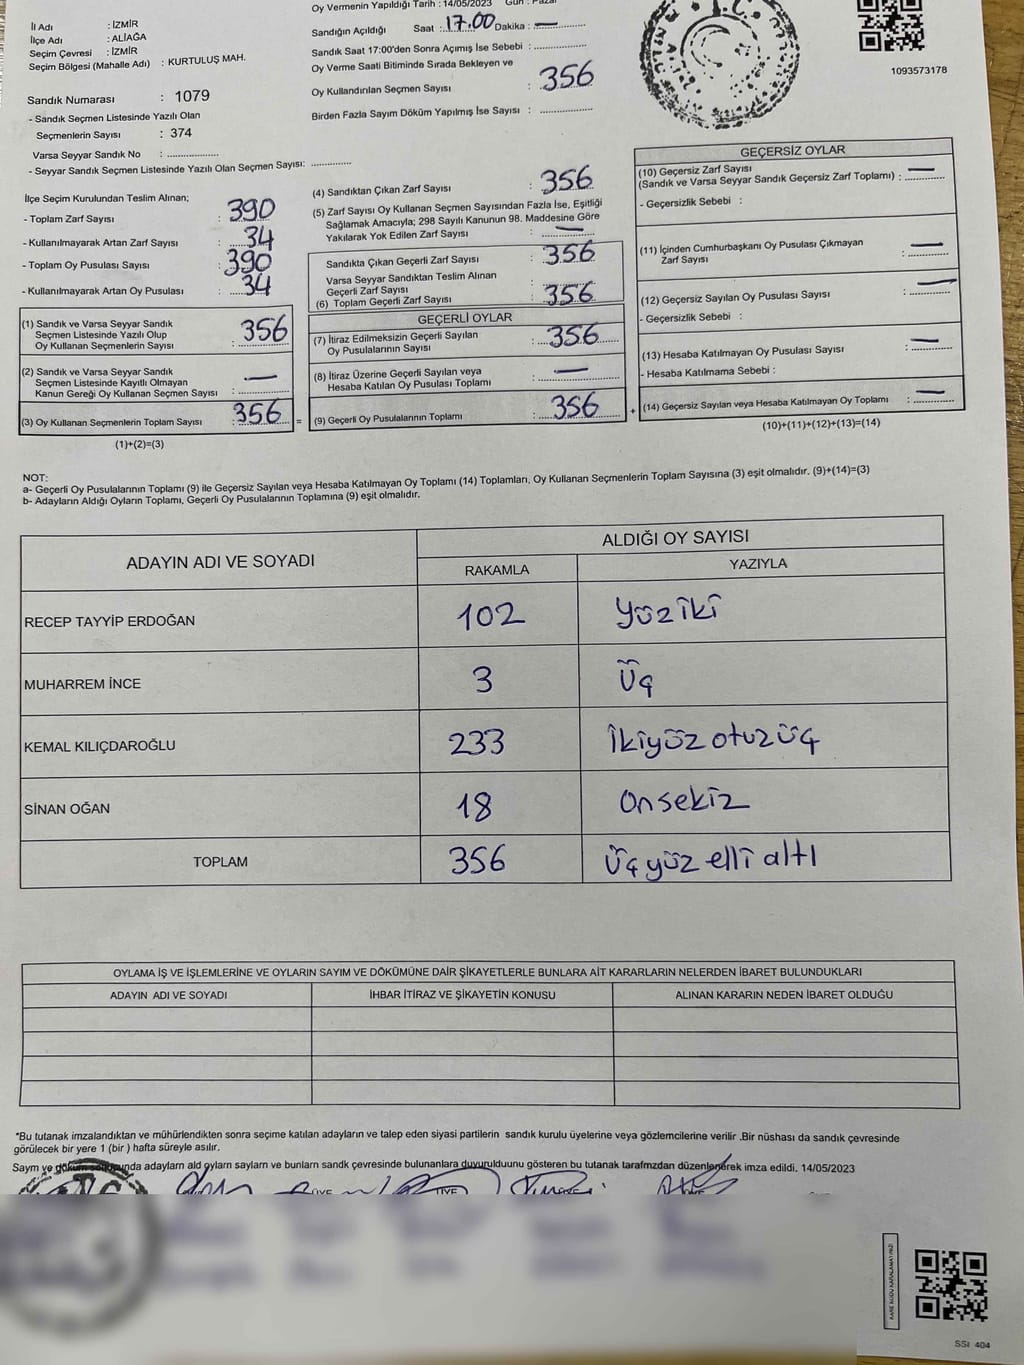 Oy Vermenin Yapıldığı Tarih : 14/05/2023 Gün : Pazar
İl Adı : İZMİR
İlçe Adı : ALİAĞA
Seçim Çevresi : İZMİR
Seçim Bölgesi (Mahalle Adı) : KURTULUŞ MAH.
Sandık Numarası : 1079
- Sandık Seçmen Listesinde Yazılı Olan
Seçmenlerin Sayısı : 374
Varsa Seyyar Sandık No : ..................
- Seyyar Sandık Seçmen Listesinde Yazılı Olan Seçmen Sayısı: ..............
Sandığın Açıldığı Saat : 17.00 Dakika : —
Sandık Saat 17:00'den Sonra Açımış İse Sebebi : ..................
Oy Verme Saati Bitiminde Sırada Bekleyen ve
Oy Kullandırılan Seçmen Sayısı : 356
Birden Fazla Sayım Döküm Yapılmış İse Sayısı : ..................
1093573178
İlçe Seçim Kurulundan Teslim Alınan;
- Toplam Zarf Sayısı : 390
- Kullanılmayarak Artan Zarf Sayısı : 34
- Toplam Oy Pusulası Sayısı : 390
- Kullanılmayarak Artan Oy Pusulası : 34
(1) Sandık ve Varsa Seyyar Sandık
Seçmen Listesinde Yazılı Olup
Oy Kullanan Seçmenlerin Sayısı : 356
(2) Sandık ve Varsa Seyyar Sandık
Seçmen Listesinde Kayıtlı Olmayan
Kanun Gereği Oy Kullanan Seçmen Sayısı : —
(3) Oy Kullanan Seçmenlerin Toplam Sayısı : 356 =
(1)+(2)=(3)
(4) Sandıktan Çıkan Zarf Sayısı : 356
(5) Zarf Sayısı Oy Kullanan Seçmen Sayısından Fazla İse, Eşitliği
Sağlamak Amacıyla; 298 Sayılı Kanunun 98. Maddesine Göre
Yakılarak Yok Edilen Zarf Sayısı : —
Sandıkta Çıkan Geçerli Zarf Sayısı : 356
Varsa Seyyar Sandıktan Teslim Alınan
Geçerli Zarf Sayısı :
(6) Toplam Geçerli Zarf Sayısı : 356
GEÇERLİ OYLAR
(7) İtiraz Edilmeksizin Geçerli Sayılan
Oy Pusulalarının Sayısı : 356
(8) İtiraz Üzerine Geçerli Sayılan veya
Hesaba Katılan Oy Pusulası Toplamı : —
(9) Geçerli Oy Pusulalarının Toplamı : 356 +
GEÇERSİZ OYLAR
(10) Geçersiz Zarf Sayısı
(Sandık ve Varsa Seyyar Sandık Geçersiz Zarf Toplamı) : —
- Geçersizlik Sebebi :
(11) İçinden Cumhurbaşkanı Oy Pusulası Çıkmayan
Zarf Sayısı : —
(12) Geçersiz Sayılan Oy Pusulası Sayısı : —
- Geçersizlik Sebebi :
(13) Hesaba Katılmayan Oy Pusulası Sayısı : —
- Hesaba Katılmama Sebebi :
(14) Geçersiz Sayılan veya Hesaba Katılmayan Oy Toplamı : —
(10)+(11)+(12)+(13)=(14)
NOT:
a- Geçerli Oy Pusulalarının Toplamı (9) ile Geçersiz Sayılan veya Hesaba Katılmayan Oy Toplamı (14) Toplamları, Oy Kullanan Seçmenlerin Toplam Sayısına (3) eşit olmalıdır. (9)+(14)=(3)
b- Adayların Aldığı Oyların Toplamı, Geçerli Oy Pusulalarının Toplamına (9) eşit olmalıdır.
ADAYIN ADI VE SOYADI ALDIĞI OY SAYISI
RAKAMLA YAZIYLA
RECEP TAYYİP ERDOĞAN 102 Yüziki
MUHARREM İNCE 3 Üç
KEMAL KILIÇDAROĞLU 233 İkiyüz otuzüç
SİNAN OĞAN 18 Onsekiz
TOPLAM 356 Üçyüz elli altı
OYLAMA İŞ VE İŞLEMLERİNE VE OYLARIN SAYIM VE DÖKÜMÜNE DAİR ŞİKAYETLERLE BUNLARA AİT KARARLARIN NELERDEN İBARET BULUNDUKLARI
ADAYIN ADI VE SOYADI İHBAR İTİRAZ VE ŞİKAYETİN KONUSU ALINAN KARARIN NEDEN İBARET OLDUĞU
*Bu tutanak imzalandıktan ve mühürlendikten sonra seçime katılan adayların ve talep eden siyasi partilerin sandık kurulu üyelerine veya gözlemcilerine verilir .Bir nüshası da sandık çevresinde
görülecek bir yere 1 (bir ) hafta süreyle asılır.
Sayım ve döküm sonucunda adayların ald oyların sayların ve bunların sandk çevresinde bulunanlara duyurulduunu gösteren bu tutanak tarafmzdan düzenlenerek imza edildi. 14/05/2023
SSİ 404